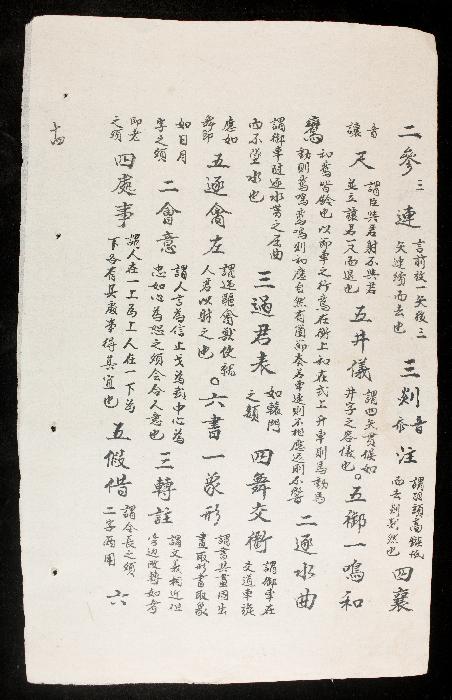 二參三連言前放一矢後三矢連續而去也三剡音亦注謂羽頭高鏃低而去剡剡然也四襄
音讓尺謂臣與君射不與君並立讓君一尺而退也五井儀謂四矢貫侯如井字之容儀也。五御一鳴和
鸞和鸞皆鈴也以節車之行鸞在衡上和在式上升車則馬動馬動則鸞鳴鸞鳴則和應自然有箇節奏若車速則不相應遲則不響二逐水曲
謂御車隨逐水勢之屈曲而不墜水也三過君表如轅門之類四舞交衢謂御車在交道車旋
應如舞節五逐禽左謂逆驅禽獸使就人君以射之也。六書一象形謂書與畫同出畫取形書取象
如日月字之類二會意謂人言為信止戈為武中心為忠如心為恕之類會合人意也三轉註謂文義相近但旁边改轉如考
即老之類四處事謂人在一上為上人在一下為下各有其處事得其宜也五假借謂令長之類二字兩用六
十四